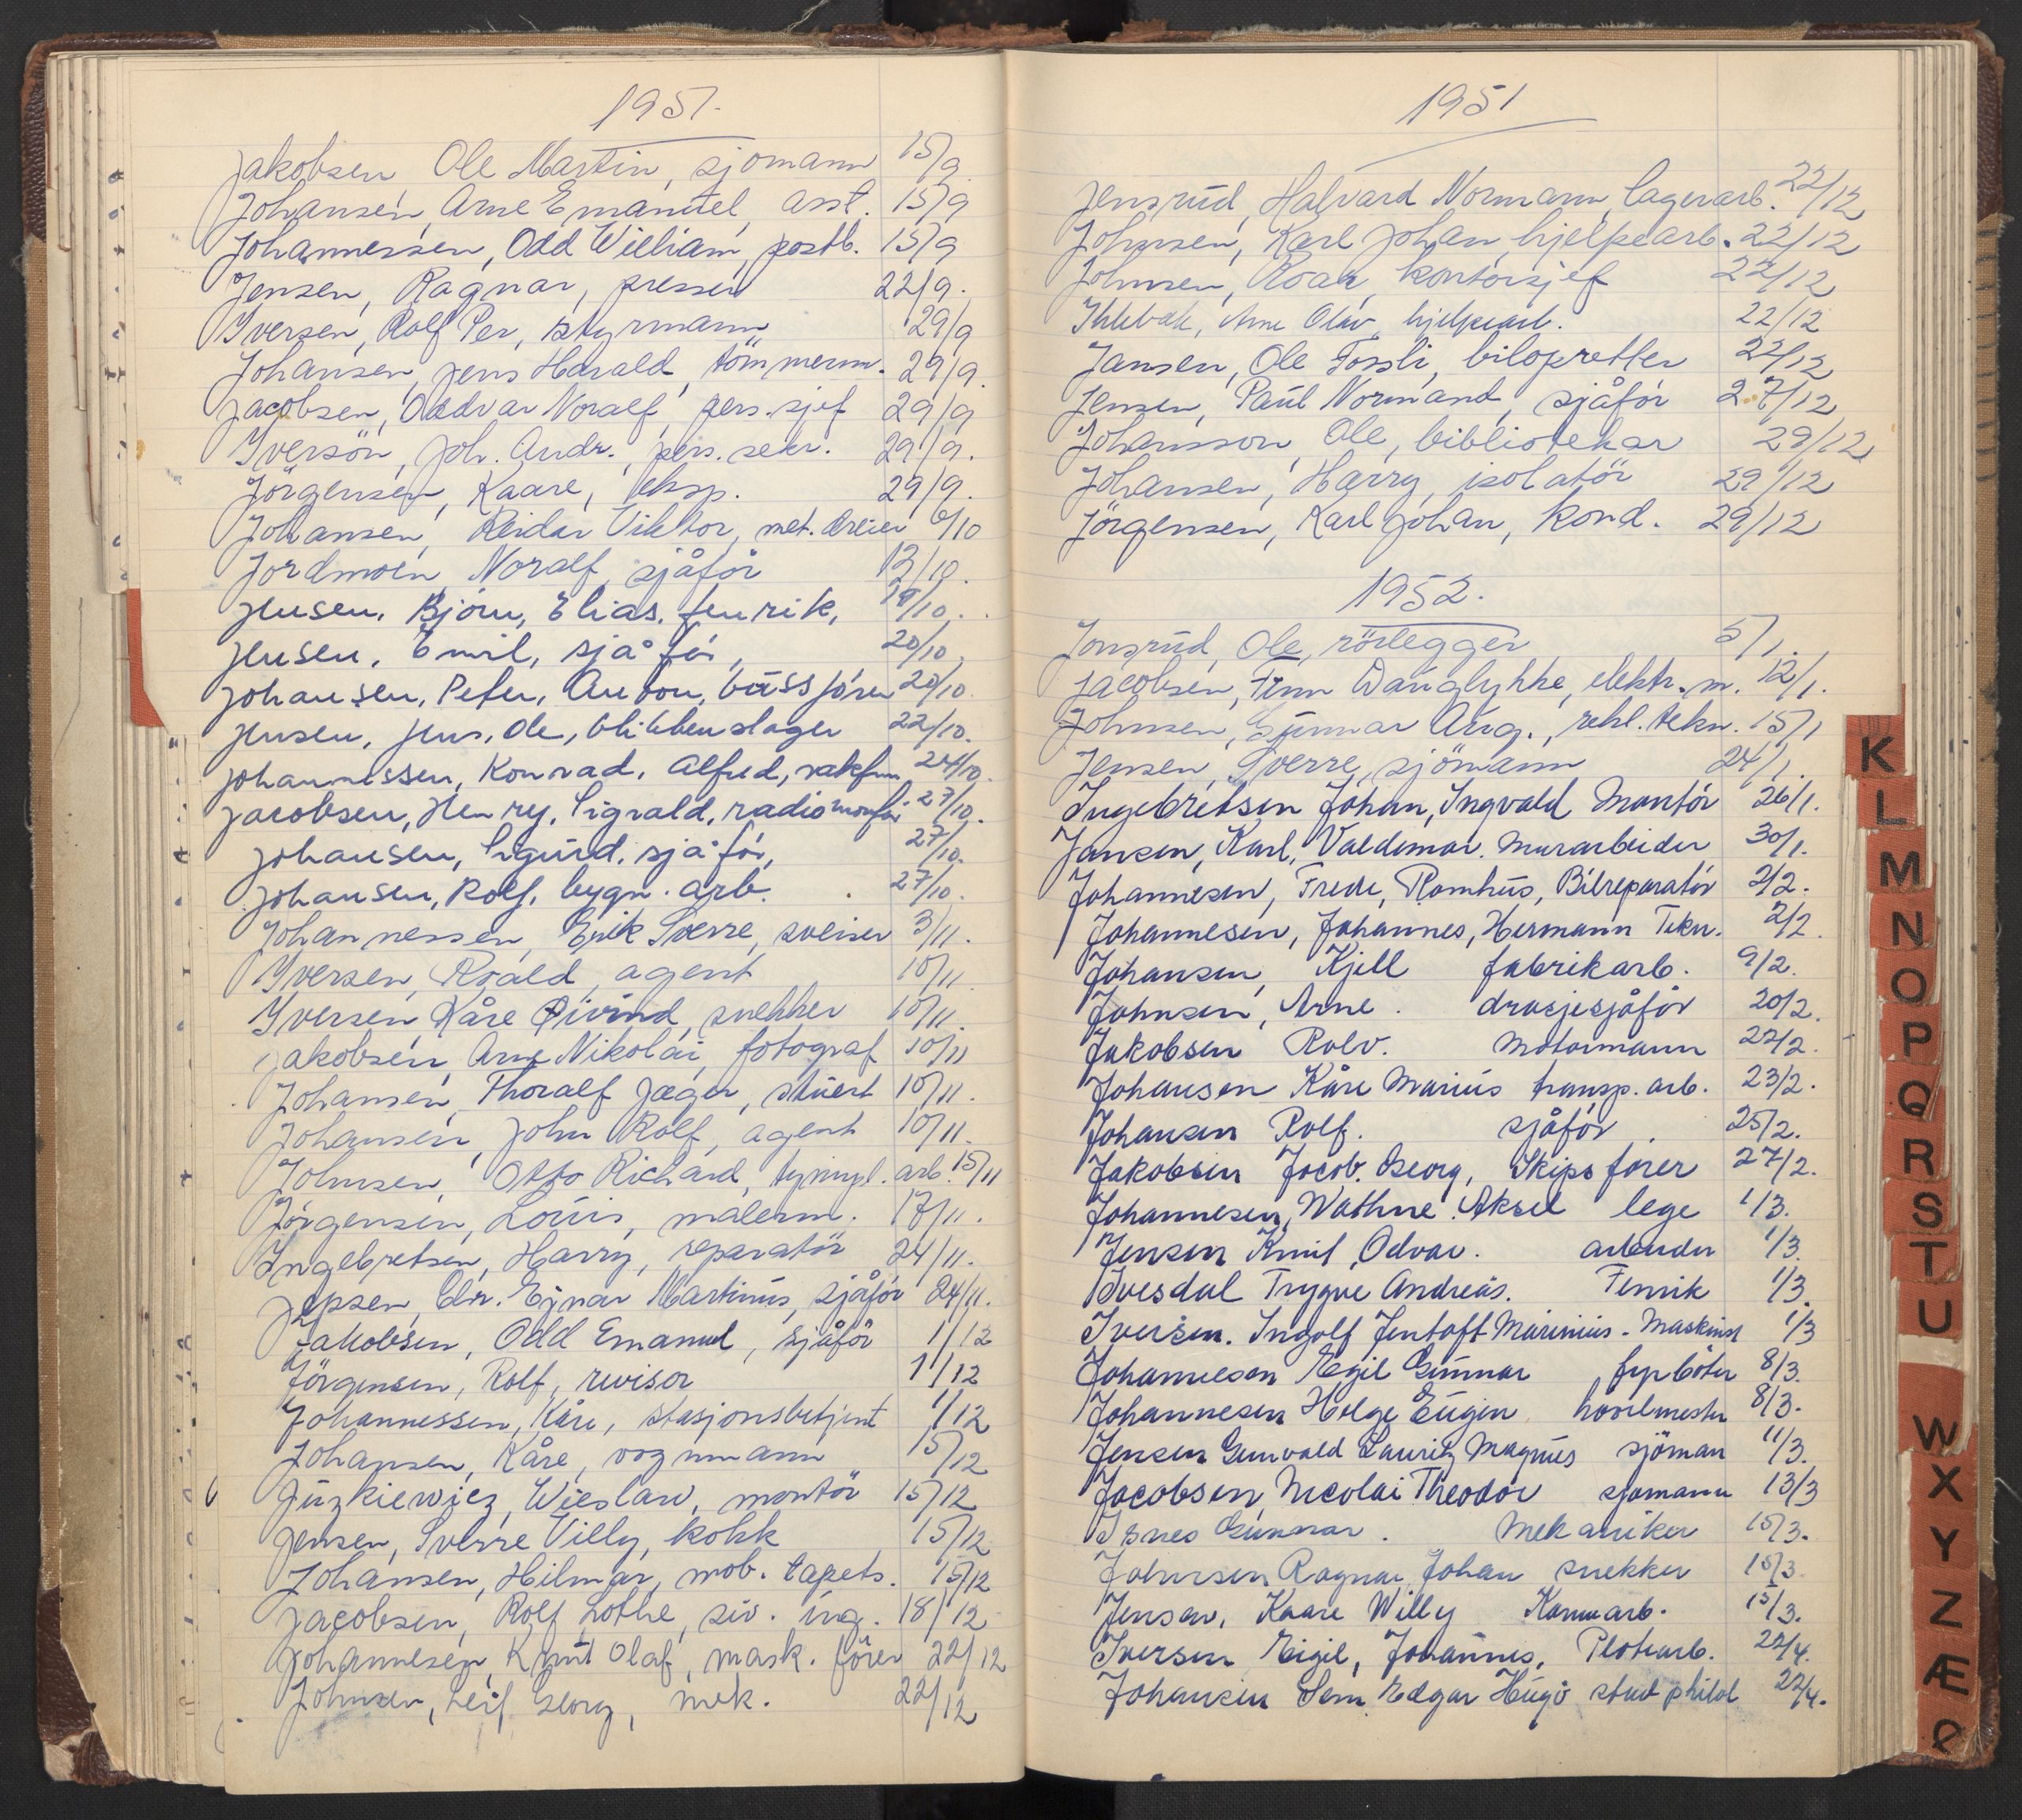 1951.
Jakobsen Ole Martin, sjömann 15/9
Johansen, Arne Emanuel, asst. 15/9
Johannessen, Odd William, postb. 15/9
Jensen, Ragnar, presser 22/9.
Iversen, Rolf Per, styrmann 29/9
Johansen, Jens Harald, tömmerm. 29/9.
Jacobsen, Oddvar Noralf, pers. sjef 29/9
Iversön, Joh. Andr., pers. sekr. 29/9.
Jörgensen, Kaare, eksp. 29/9.
Johansen, Reidar Viktor, met. dreier 6/10
Jordmoen, Noralf, sjåför 13/10.
Jensen, Björn, Elias, fenrik, 19/10.
Jensen, Emil, sjåför, 20/10.
Johansen, Peter, Anton, bussförer 20/10.
Jensen, Jens, Ole, blikkenslager 22/10.
Johannessen, Konrad, Alfred, vaktm 24/10.
Jacobsen, Henry, Sigvald, radiomontör 27/10.
Johansen, Sigurd, sjåför, 27/10.
Johansen, Rolf, bygn. arb. 27/10.
Johannessen, Erik Sverre, sveiser 3/11.
Iversen, Roald, agent 10/11
Iversen Kåre Øivind, snekker 10/11.
Jakobsen, Arne Nikolai, fotograf 10/11
Johansen, Thoralf Jæger, stuert 10/11.
Johansen, John Rolf, agent 10/11.
Johnsen, Otto Richard, arb. 15/11
Jörgensen, Louis, malerm. 17/11.
Ingebretsen, Harry, reparatör 24/11.
Jepsen, Chr. Ejnar Martinus, sjåför 24/11.
Jakobsen, Odd Emanuel, sjåför 1/12
Jörgensen, Rolf, revisor 1/12
Johannessen, Kåre, stasjonsbetjent 1/12
Johansen, Kåre, vognmann 15/12
Juzkiewicz, Wieslaw, montör 15/12
Jensen, Sverre Villy, kokk 15/12
Johansen, Hilmar, möb. tapets. 15/12
Jacobsen, Rolf Lothe, siv. ing. 18/12
Johannesen, Knut Olaf, mask. förer 22/12
Johnsen, Leif Georg, mek. 22/12
1951
Jensrud, Halvard Normann, lagerarb. 22/12
Johnsen, Karl Johan, hjelpearb. 22/12
Johnsen, Roar, kontorsjef 22/12
Ihlebæk, Arne Olav, hjelpearb. 22/12
Jansen, Ole Fossli, biloppretter 22/12
Jensen, Paul Normand, sjåför 27/12
Johansson, Ole, bibliotekar 29/12
Johansen, Harry, isolatör 29/12
Jörgensen, Karl Johan, kond. 29/12
1952.
Jonsrud, Ole, rörlegger 5/1.
Jacobsen, Finn Wanglykke, elektr. m. 12/1.
Johnsen, Gunnar Aug., rekl. tekn. 15/1
Jensen, Sverre, sjömann 24/1.
Ingebretsen Johan, Ingvald Montör 26/1.
Jansen, Karl, Valdemar. Murarbeider 30/1.
Johannesen, Frede, Romhus, Bilreparatör 2/2.
Johannesen, Johannes, Hermann Tekn. 2/2.
Johansen, Kjell fabrikarb. 9/2.
Johnsen, Arne. drosjesjåför 20/2.
Jakobsen Rolv. Motormann 22/2.
Johansen Kåre Marius transp. arb. 23/2.
Johansen Rolf. sjåför 25/2.
Jakobsen Jacob. Georg, Skipsförer 27/2.
Johannesen, Wathne. Aksel lege 1/3.
Jensen Knut, Odvar. arbeider 1/3.
Ivesdal Trygve Andreas. Fenrik 1/3.
Iversen. Ingolf Jentoft Marinius. Maskinst 1/3
Johannesen Egil Gunnar fyrböter 8/3.
Johannesen Helge Eugen hovelmester 8/3.
Jensen Gunvald Lauritz Magnus sjöman 11/3.
Jacobsen Nicolai Theodor sjömann 13/3
Isnes Gunnar. Mekaniker 15/3.
Johnsen Ragnar Johan snekker 15/3.
Jensen, Kaare Willy Komm arb. 15/3.
Iversen Eigil, Johannes, Platearb. 22/4.
Johansen Sem Edgar Hugo stud philol 22/4.
K
L
M
N
O
P
Q
R
S
T
U
W
X
Y
Z
Æ
Ø